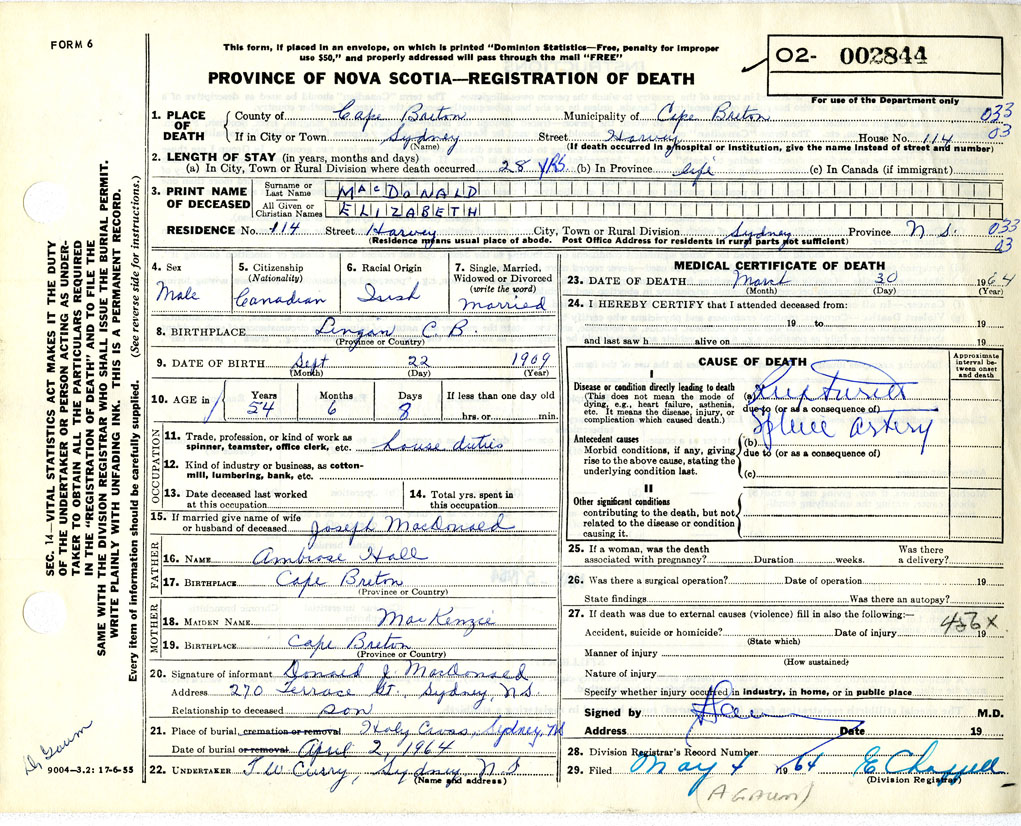 FORM 6
This form, if placed in an envelope, on which is printed "Dominion Statistics—Free, penalty for improper
use $50," and properly addressed will pass through the mail "FREE"
PROVINCE OF NOVA SCOTIA—REGISTRATION OF DEATH
02- 002844
For use of the Department only
SEC. 14—VITAL STATISTICS ACT MAKES IT THE DUTY
OF THE UNDERTAKER OR PERSON ACTING AS UNDER-
TAKER TO OBTAIN ALL THE PARTICULARS REQUIRED
IN THE "REGISTRATION OF DEATH" AND TO FILE THE
SAME WITH THE DIVISION REGISTRAR WHO SHALL ISSUE THE BURIAL PERMIT.
WRITE PLAINLY WITH UNFADING INK. THIS IS A PERMANENT RECORD.
Every item of information should be carefully supplied. (See reverse side for instructions.)
1. PLACE OF DEATH County of Cape Breton Municipality of Cape Breton 033
If in City or Town Sydney Street Harvey House No. 114 03
(Name) (If death occurred in a hospital or institution, give the name instead of street and number)
2. LENGTH OF STAY (in years, months and days)
(a) In City, Town or Rural Division where death occurred 28 yrs (b) In Province life (c) In Canada (if immigrant)
3. PRINT NAME OF DECEASED Surname or Last Name MacDONALD
All Given or Christian Names ELIZABETH
RESIDENCE No. 114 Street Harvey City, Town or Rural Division Sydney Province N.S. 033
(Residence means usual place of abode. Post Office Address for residents in rural parts not sufficient) 03
4. Sex Male
5. Citizenship (Nationality) Canadian
6. Racial Origin Irish
7. Single, Married, Widowed or Divorced (write the word) Married
8. BIRTHPLACE Lingan C.B.
(Province or Country)
9. DATE OF BIRTH Sept 22 1909
(Month) (Day) (Year)
10. AGE in Years 54 Months 6 Days 8 If less than one day old
hrs. or min.
OCCUPATION
11. Trade, profession, or kind of work as spinner, teamster, office clerk, etc. house duties
12. Kind of industry or business, as cotton-mill, lumbering, bank, etc.
13. Date deceased last worked at this occupation
14. Total yrs. spent in this occupation
15. If married give name of wife or husband of deceased Joseph MacDonald
FATHER
16. NAME Ambrose Hall
17. BIRTHPLACE Cape Breton
(Province or Country)
MOTHER
18. MAIDEN NAME MacKenzie
19. BIRTHPLACE Cape Breton
(Province or Country)
20. Signature of informant Donald J. MacDonald
Address 270 Terrace St. Sydney, N.S.
Relationship to deceased son
21. Place of burial, cremation or removal Holy Cross, Sydney, NS
Date of burial or removal April 2, 1964
22. UNDERTAKER T.W. Curry, Sydney N.S
(Name and address)
9004-3.2: 17-6-55
MEDICAL CERTIFICATE OF DEATH
23. DATE OF DEATH March 30 1964
(Month) (Day) (Year)
24. I HEREBY CERTIFY that I attended deceased from:
19 to 19
and last saw h alive on 19
CAUSE OF DEATH
Approximate interval between onset and death
I
Disease or condition directly leading to death
(This does not mean the mode of dying, e.g., heart failure, asthenia, etc. It means the disease, injury, or complication which caused death.)
(a) Ruptured
due to (or as a consequence of)
Splenic artery
Antecedent causes
Morbid conditions, if any, giving rise to the above cause, stating the underlying condition last.
(b)
due to (or as a consequence of)
(c)
II
Other significant conditions
contributing to the death, but not related to the disease or condition causing it.
25. If a woman, was the death associated with pregnancy? Duration weeks. Was there a delivery?
26. Was there a surgical operation? Date of operation 19
State findings Was there an autopsy?
27. If death was due to external causes (violence) fill in also the following:— 456X
Accident, suicide or homicide? Date of injury 19
(State which)
Manner of injury
(How sustained)
Nature of injury
Specify whether injury occurred in industry, in home, or in public place
Signed by M.D.
Address Date 19
28. Division Registrar's Record Number
29. Filed May 4 1964 E Chappell
(Division Registrar)
(A GAUM)